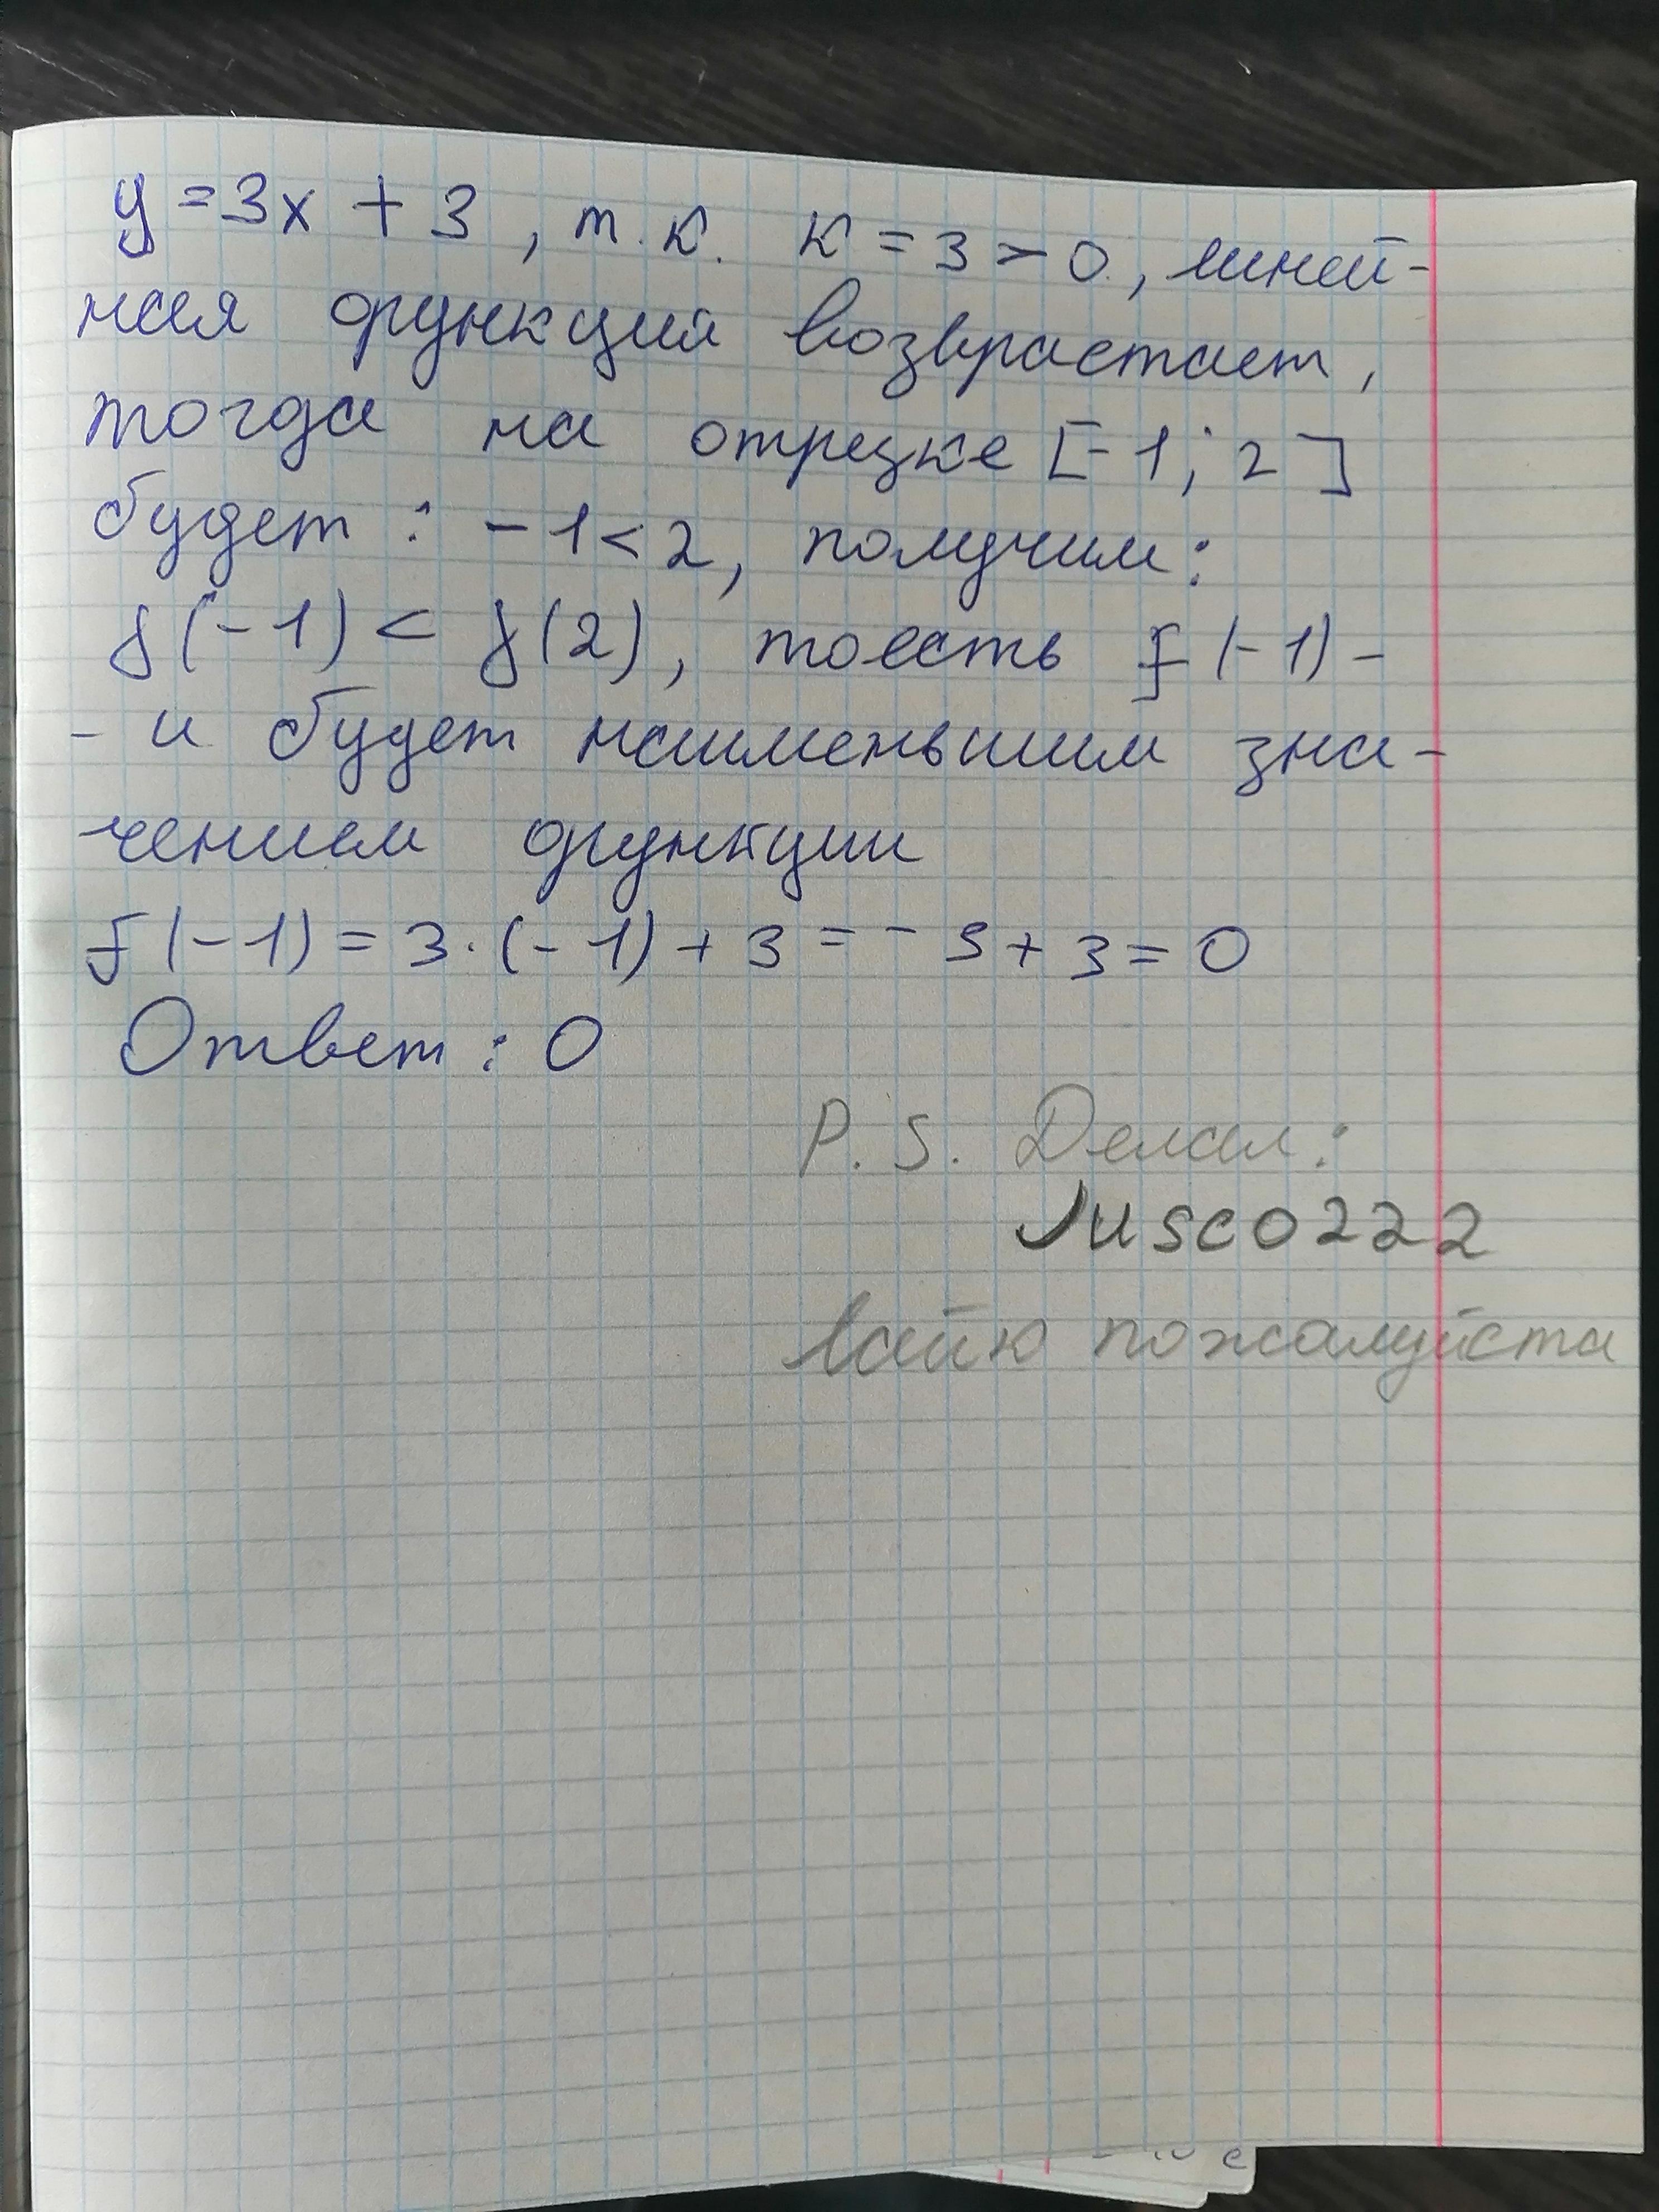 y = 3x + 3, т.к. к = 3 > 0, линей-
ная функция возврастает,
тогда на отрезке [-1; 2]
будет: -1 < 2, получим:
f(-1) < f(2), тоесть f(-1) -
- и будет наименьшим зна-
чением функции
f(-1) = 3·(-1) + 3 = -3 + 3 = 0
Ответ: 0
P.S. Делал:
Jusco222
лайк пожалуйста